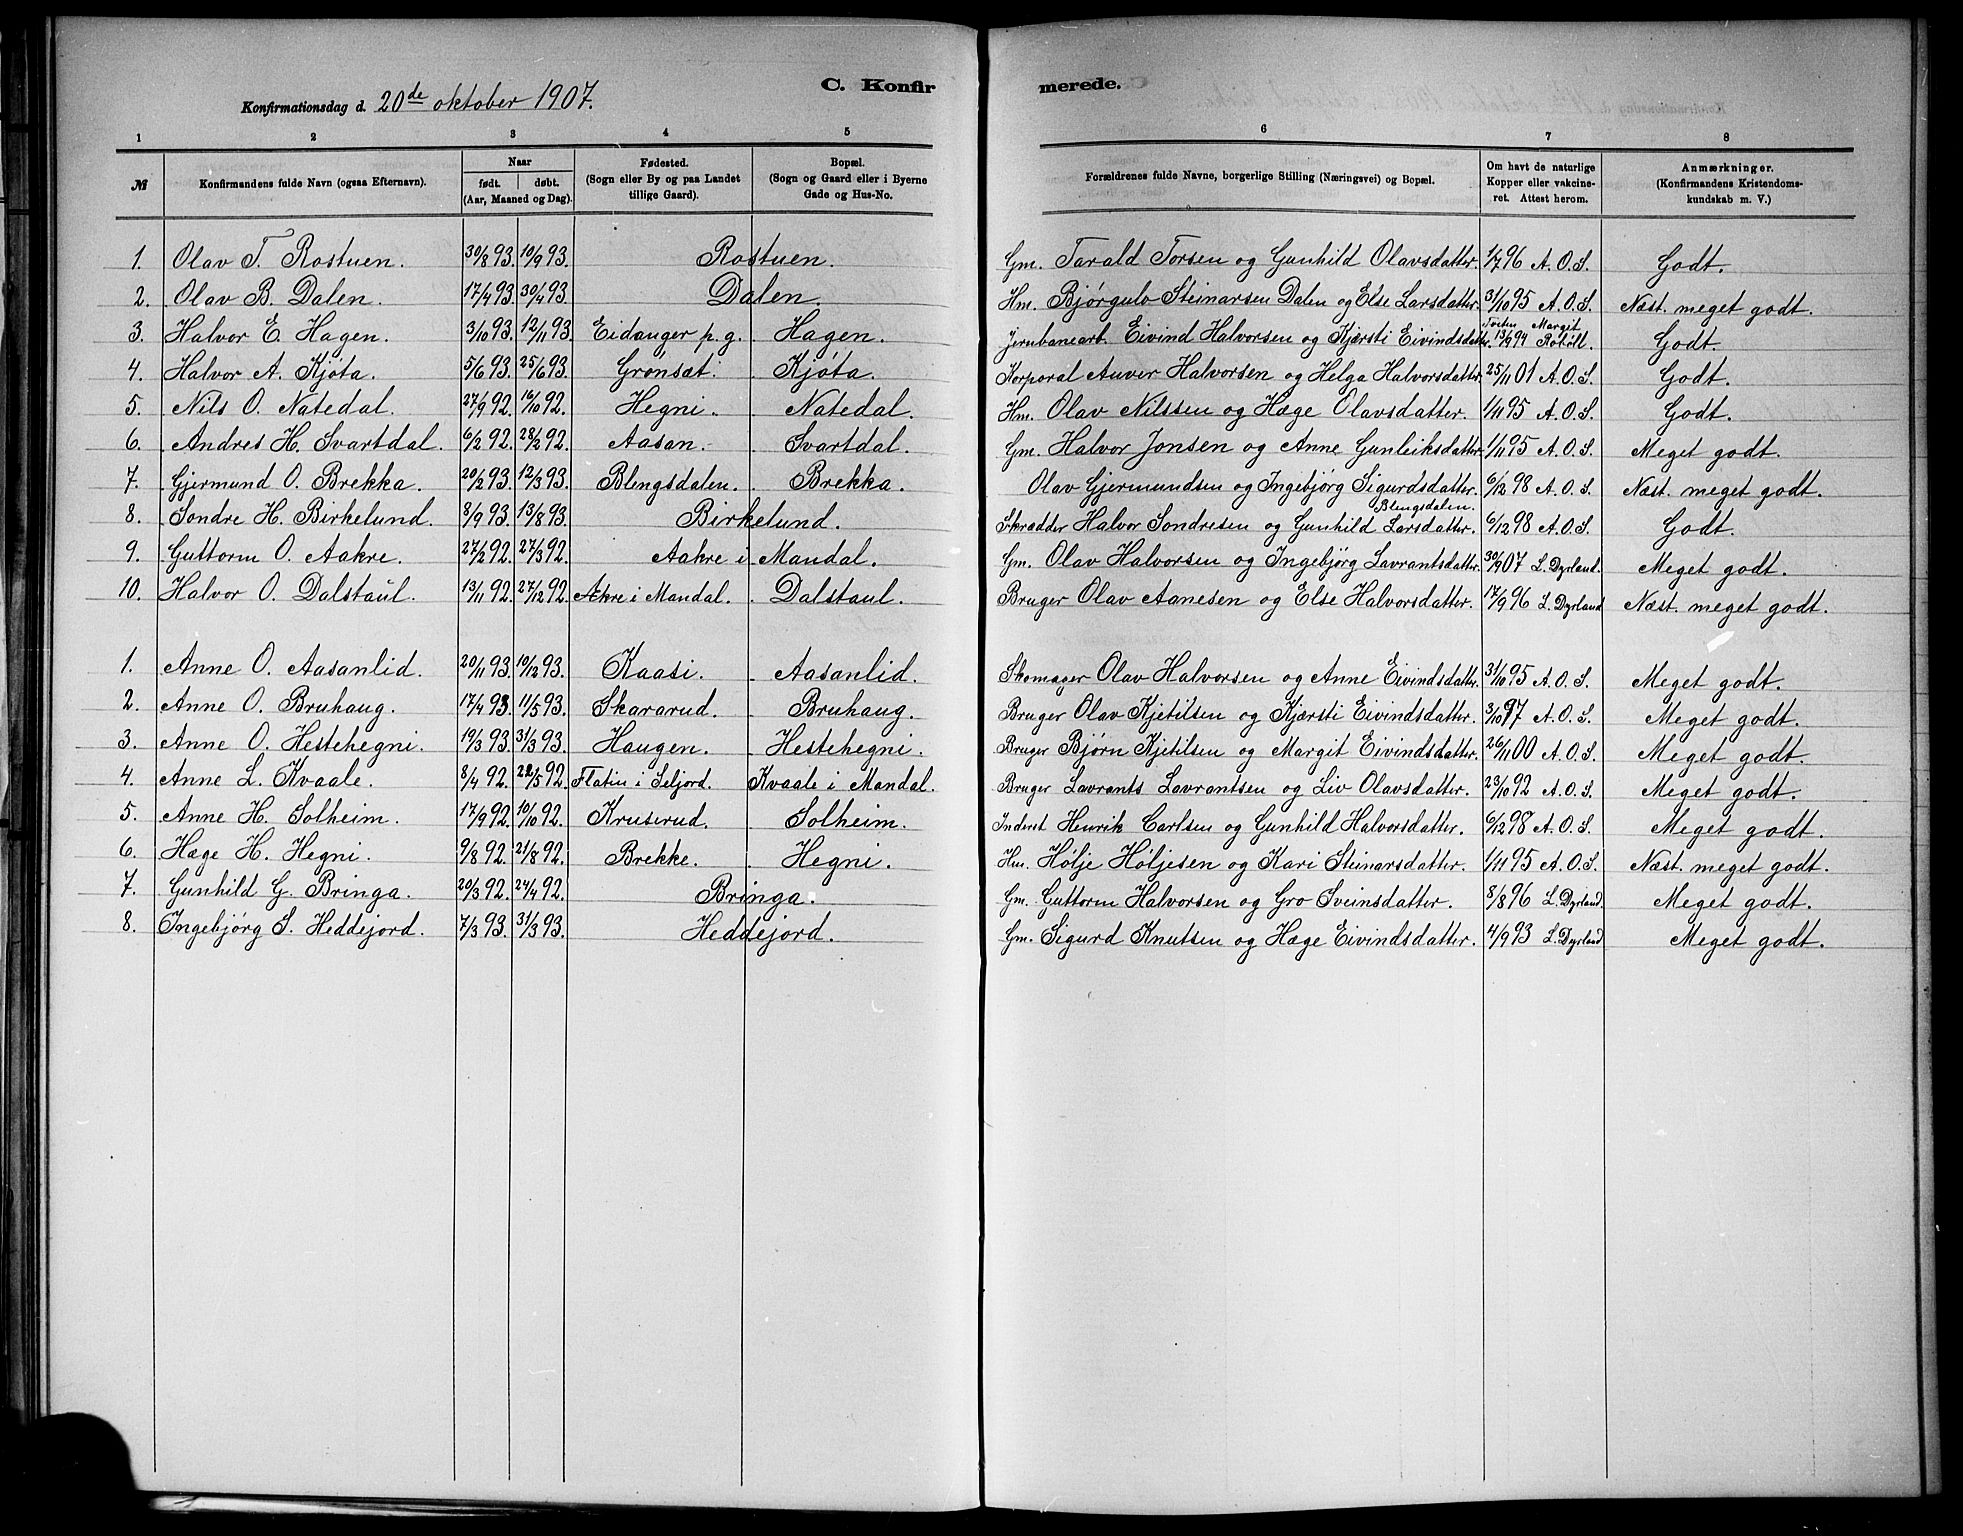 Konfirmationsdag d. 20de oktober 1907. C. Konfirmerede.
1 2 3 4 5 6 7 8
№ Konfirmandens fulde Navn (ogsaa Efternavn). Naar født. døbt. (Aar, Maaned og Dag). Fødested. (Sogn eller By og paa Landet tillige Gaard). Bopæl. (Sogn og Gaard eller i Byerne Gade og Hus-No. Forældrenes fulde Navne, borgerlige Stilling (Næringsvei) og Bopæl. Om havt de naturlige Kopper eller vakcineret. Attest herom. Anmærkninger. (Konfirmandens Kristendomskundskab m. V.)
1. Olav T. Rostuen. 30/8 93. 10/9 93. Rostuen. Gm. Tarald Torsen og Gunhild Olavsdatter. 1/7 96 A. O. S. Godt.
2. Olav B. Dalen. 17/4 93. 30/4 93. Dalen. Hm. Bjørgulv Steinarsen Dalen og Else Larsdatter. 31/10 95 A. O. S. Næst. meget godt.
3. Halvor E. Hagen. 3/10 93. 12/11 93. Eidanger p. g. Hagen. Jernbanearb. Eivind Halvorsen og Kjærsti Eivindsdatter. 13/9 94 Margit Godt.
4. Halvor A. Kjøta. 5/6 93. 25/6 93. Grønsæt. Kjøta. Korporal Auver Halvorsen og Helga Halvorsdatter. 25/11 01 A. O. S. Godt.
5. Nils O. Natedal. 27/9 92. 16/10 92. Hegni. Natedal. Hm. Olav Nilssen og Hæge Olavsdatter. 1/11 95 A. O. S. Godt.
6. Andres H. Svartdal. 6/2 92. 28/2 92. Aasan. Svartdal. Gm. Halvor Jonsen og Anne Gunleiksdatter. 1/11 95 A. O. S. Meget godt.
7. Gjermund O. Brekka. 20/2 93. 12/3 93. Blengsdalen. Brekka. Olav Gjermundsen og Ingebjørg Sigurdsdatter. Blengsdalen. 6/12 98 A. O. S. Næst. meget godt.
8. Sondre H. Birkelund. 8/9 93. 13/8 93. Birkelund. Skrædder Halvor Sondresen og Gunhild Larsdatter. 6/12 98 A. O. S. Godt.
9. Guttorm O. Aakre. 27/2 92. 27/3 92. Aakre i Mandal. Gm. Olav Halvorsen og Ingebjørg Lavrantsdatter. 30/9 07 L. Dyrland. Meget godt.
10. Halvor O. Dalstaul. 13/11 92. 27/12 92. Aakre i Mandal. Dalstaul. Bruger Olav Aanesen og Else Halvorsdatter. 17/9 96 L. Dyrland Næst. meget godt.
1. Anne O. Aasanlid. 20/11 93. 10/12 93. Kaasi. Aasanlid. Skomager Olav Halvorsen og Anne Eivindsdatter. 31/10 95 A. O. S. Meget godt.
2. Anne O. Bruhaug. 17/4 93. 11/5 93. Skararud. Bruhaug. Bruger Olav Kjetilsen og Kjærsti Eivindsdatter. 3/10 97 A. O. S. Meget godt.
3. Anne O. Hestehegni. 19/3 93. 31/3 93. Haugen. Hestehegni. Bruger Bjørn Kjetilsen og Margit Eivindsdatter. 26/11 00 A. O. S. Meget godt.
4. Anne L. Kvaale. 8/4 92. 22/5 92. Flatin i Seljord. Kvaale i Mandal. Bruger Lavrants Lavrantsen og Liv Olavsdatter. 23/10 92 A. O. S. Meget godt.
5. Anne H. Solheim. 17/9 92. 10/10 92. Kruserud. Solheim. Inderst Henrik Carlsen og Gunhild Halvorsdatter. 6/12 98 A. O. S. Meget godt.
6. Hæge H. Hegni. 9/8 92. 21/8 92. Brekke. Hegni. Hm. Hølje Høljesen og Kari Steinarsdatter. 1/11 95 A. O. S. Næst. meget godt.
7. Gunhild G. Bringa. 20/3 92. 24/4 92. Bringa. Gm. Guttorm Halvorsen og Gro Sveinsdatter. 8/8 96 L. Dyrland. Meget godt.
8. Ingebjørg S. Heddejord. 7/3 93. 31/3 93. Heddejord. Gm. Sigurd Knutsen og Hæge Eivindsdatter. 4/9 93 L. Dyrland Meget godt.